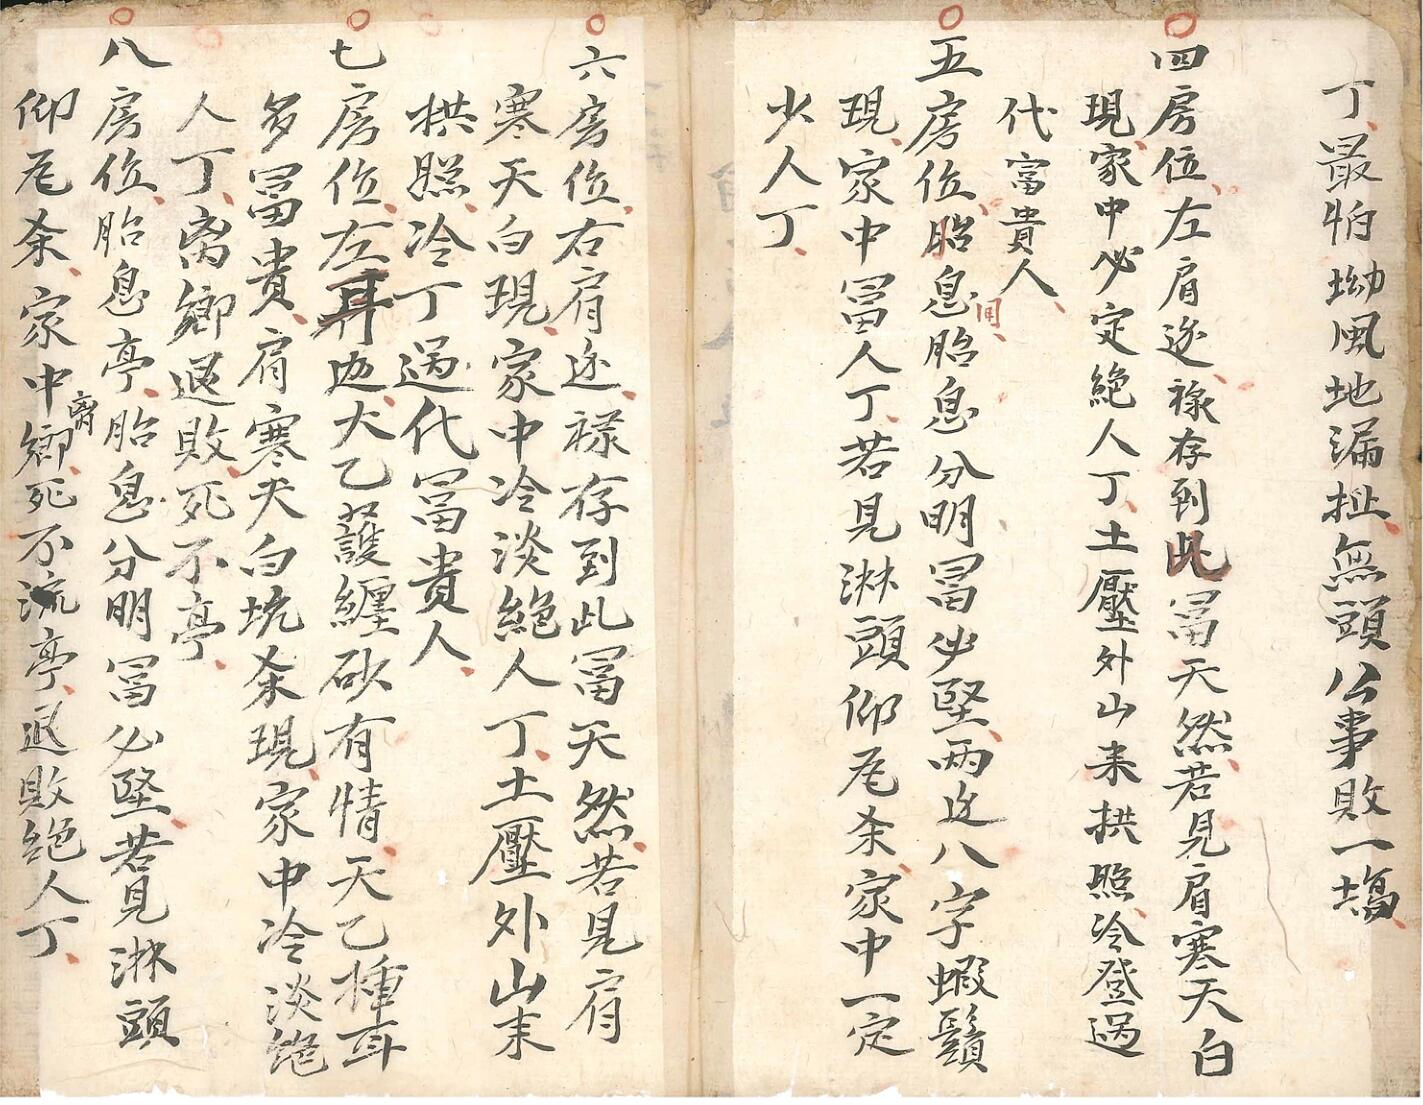 丁最怕坳風地漏扯無頭公事敗一塲
四房位左肩迯祿存到此冨天然若見肩寒天白
現家中必定絶人丁土壓外山来拱照冷登過
代富貴人
五房位胎息胎息分明冨必堅兩边八字蝦鬚
現家中冨人丁若見淋頭仰尾杀家中一定
少人丁
六房位右肩迯祿存到此冨天然若見肩
寒天白現家中冷淡絶人丁土壓外山来
拱照冷丁過代冨貴人
七房位左耳边大乙護纏砂有情天乙揷耳
多冨貴肩寒天白坑杀現家中冷淡絶
人丁离鄉退敗死不亭
八房位胎息亭胎息分明冨必堅若見淋頭
仰尾杀家中離鄉死不流亭退敗絶人丁